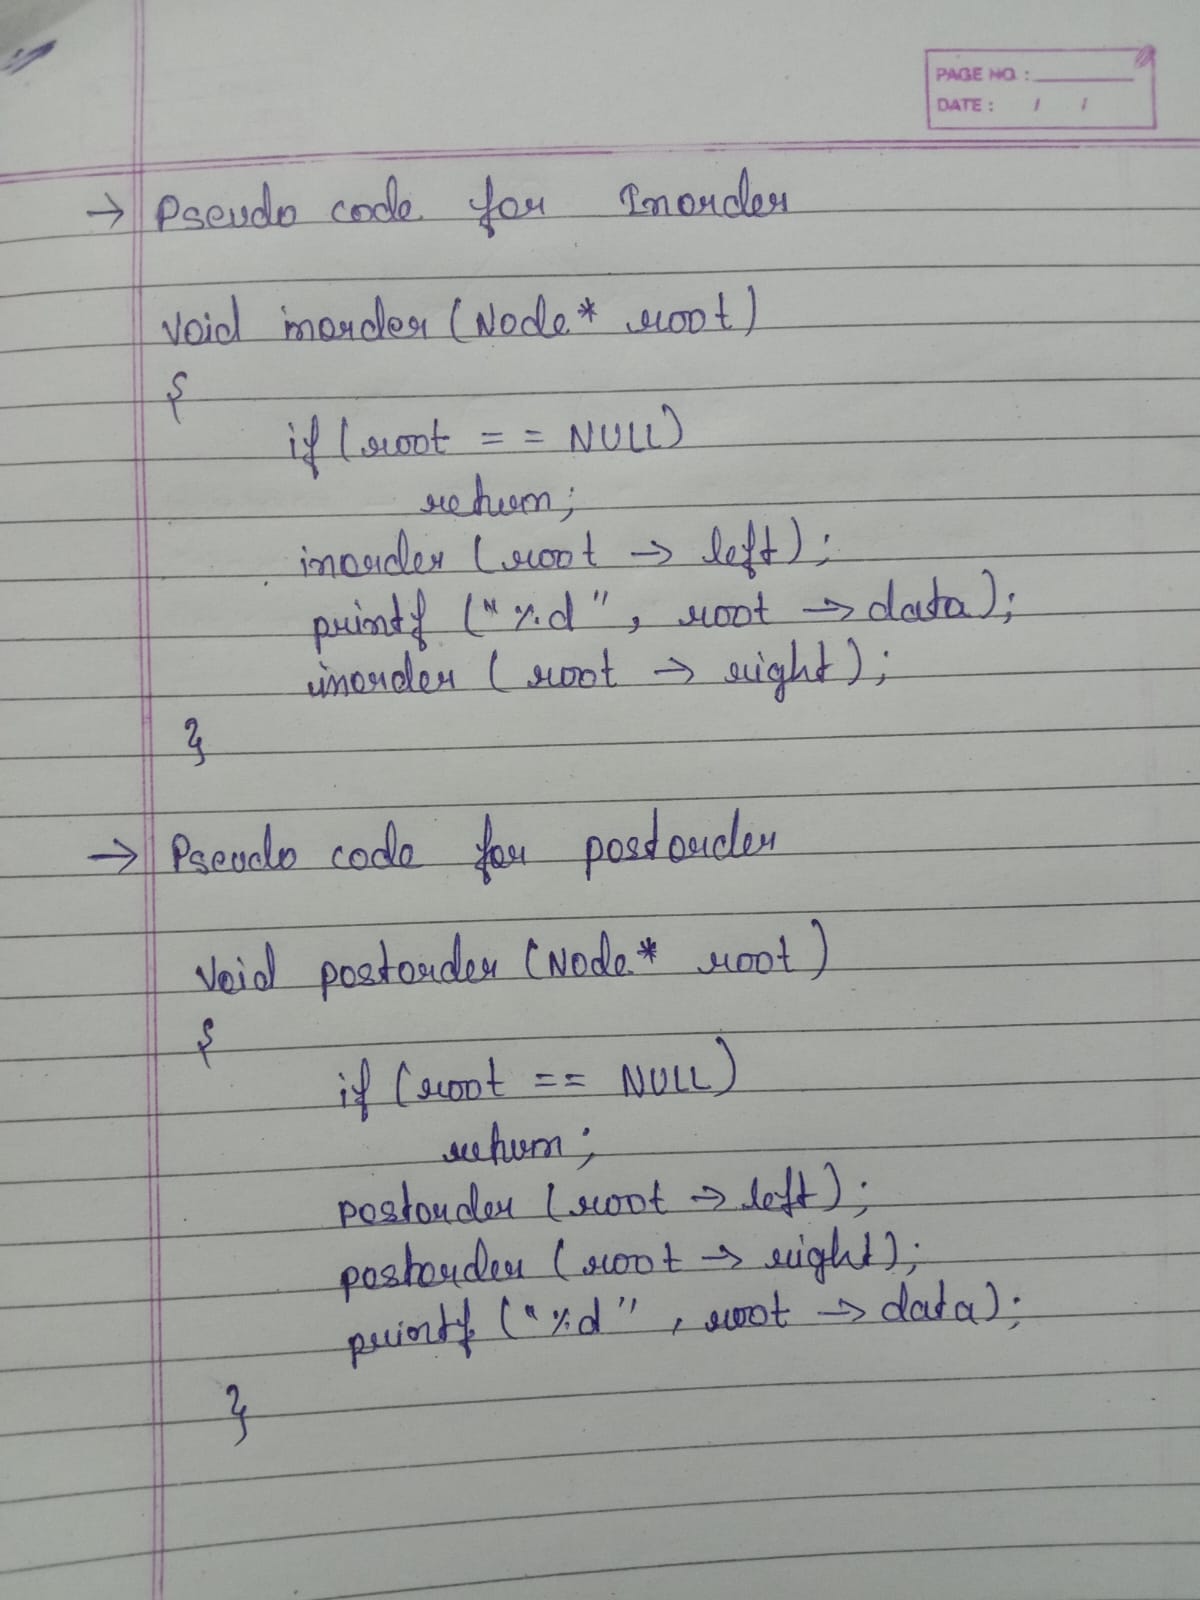 PAGE NO. :
DATE : / /
→ Pseudo code for Inorder
void inorder (Node* root)
{
if (root == NULL)
return;
inorder (root → left);
printf ("%d", root → data);
inorder (root → right);
}
→ Pseudo code for postorder
void postorder (Node* root)
{
if (root == NULL)
return;
postorder (root → left);
postorder (root → right);
printf ("%d", root → data);
}